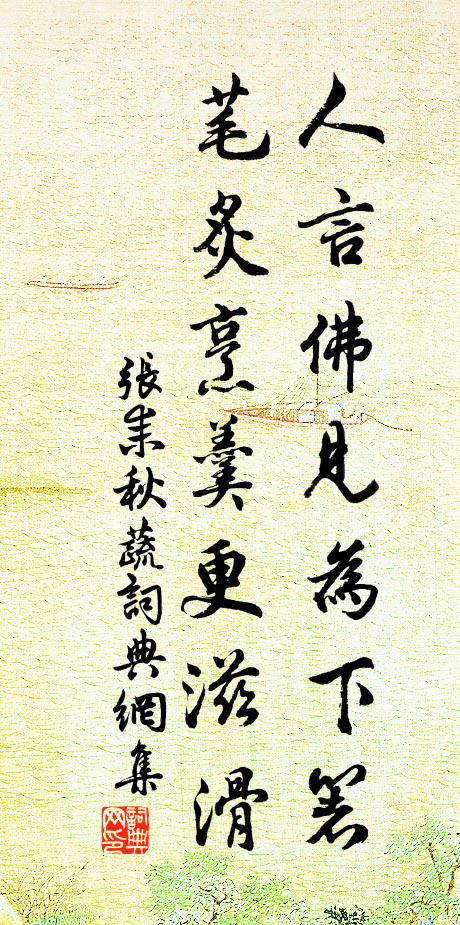 人言佛見為下箸
芼炙烹羹更滋滑
張耒秋蔬詞典網集
詞典网印